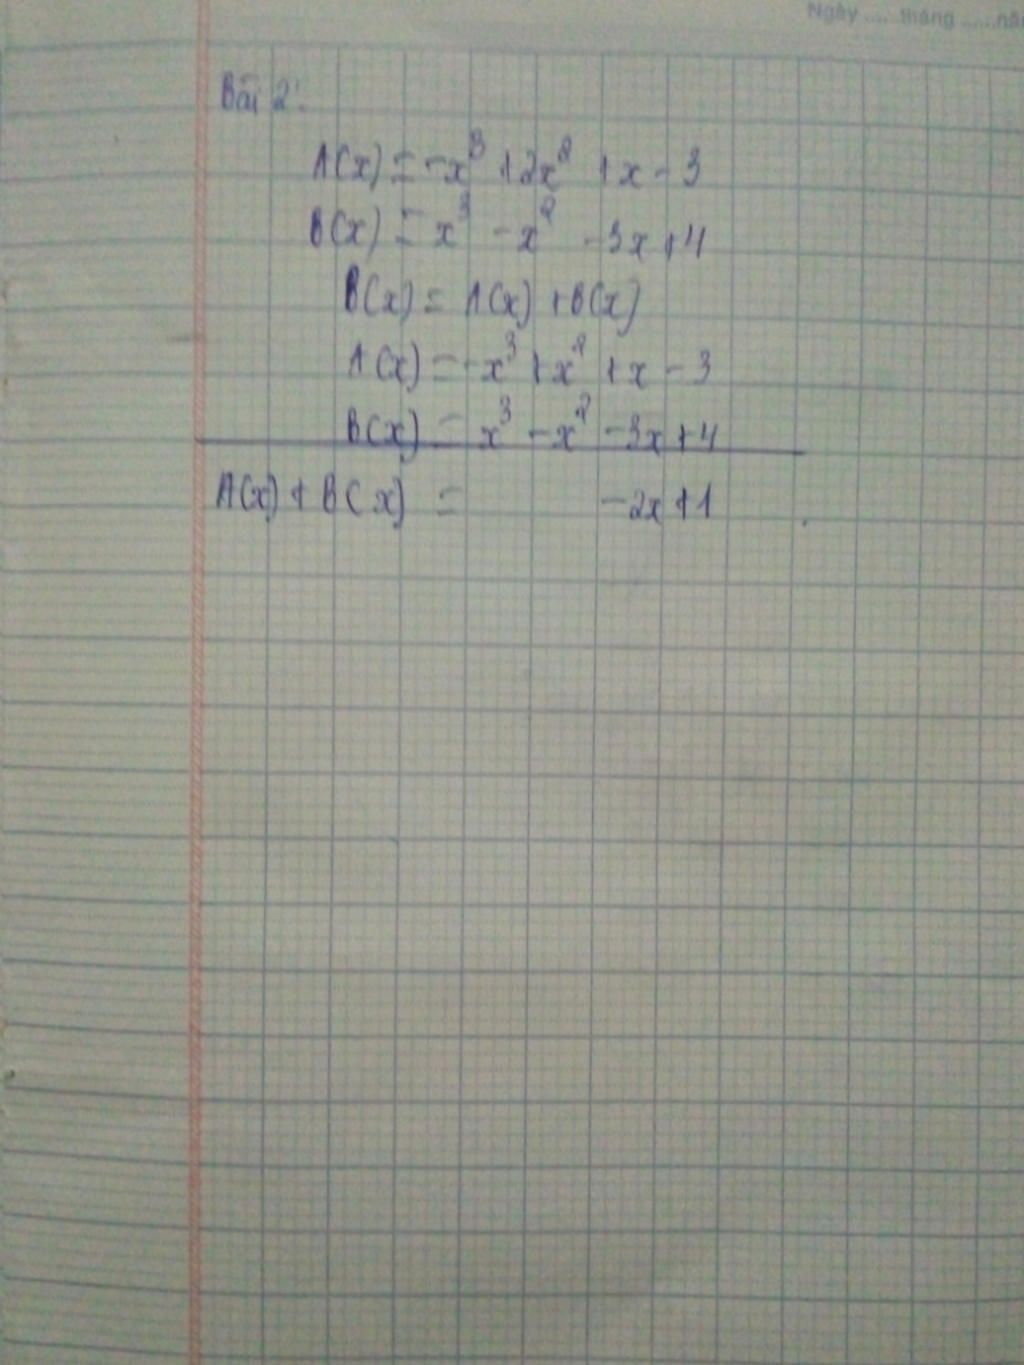 Ngày ..... tháng ......nă
Bài 2:
A(x) = -x³ +2x² +x - 3
B(x) = x³ -x² -3x+4
B(x) = A(x) +B(x)
A(x) = -x³ +x² +x - 3
B(x) = x³ -x² -3x+4
A(x) + B(x) = -2x+1